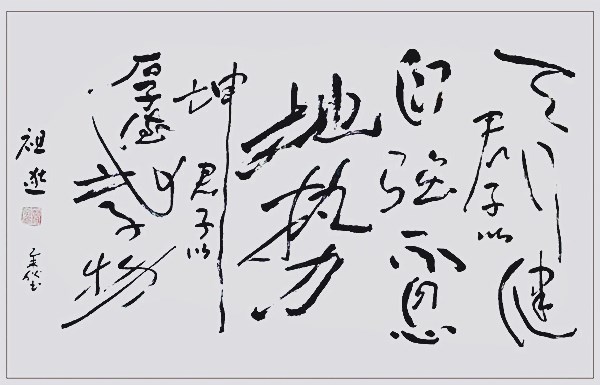 天行健
君子以
自强不息
地势
坤
君子以
厚德载物
祖